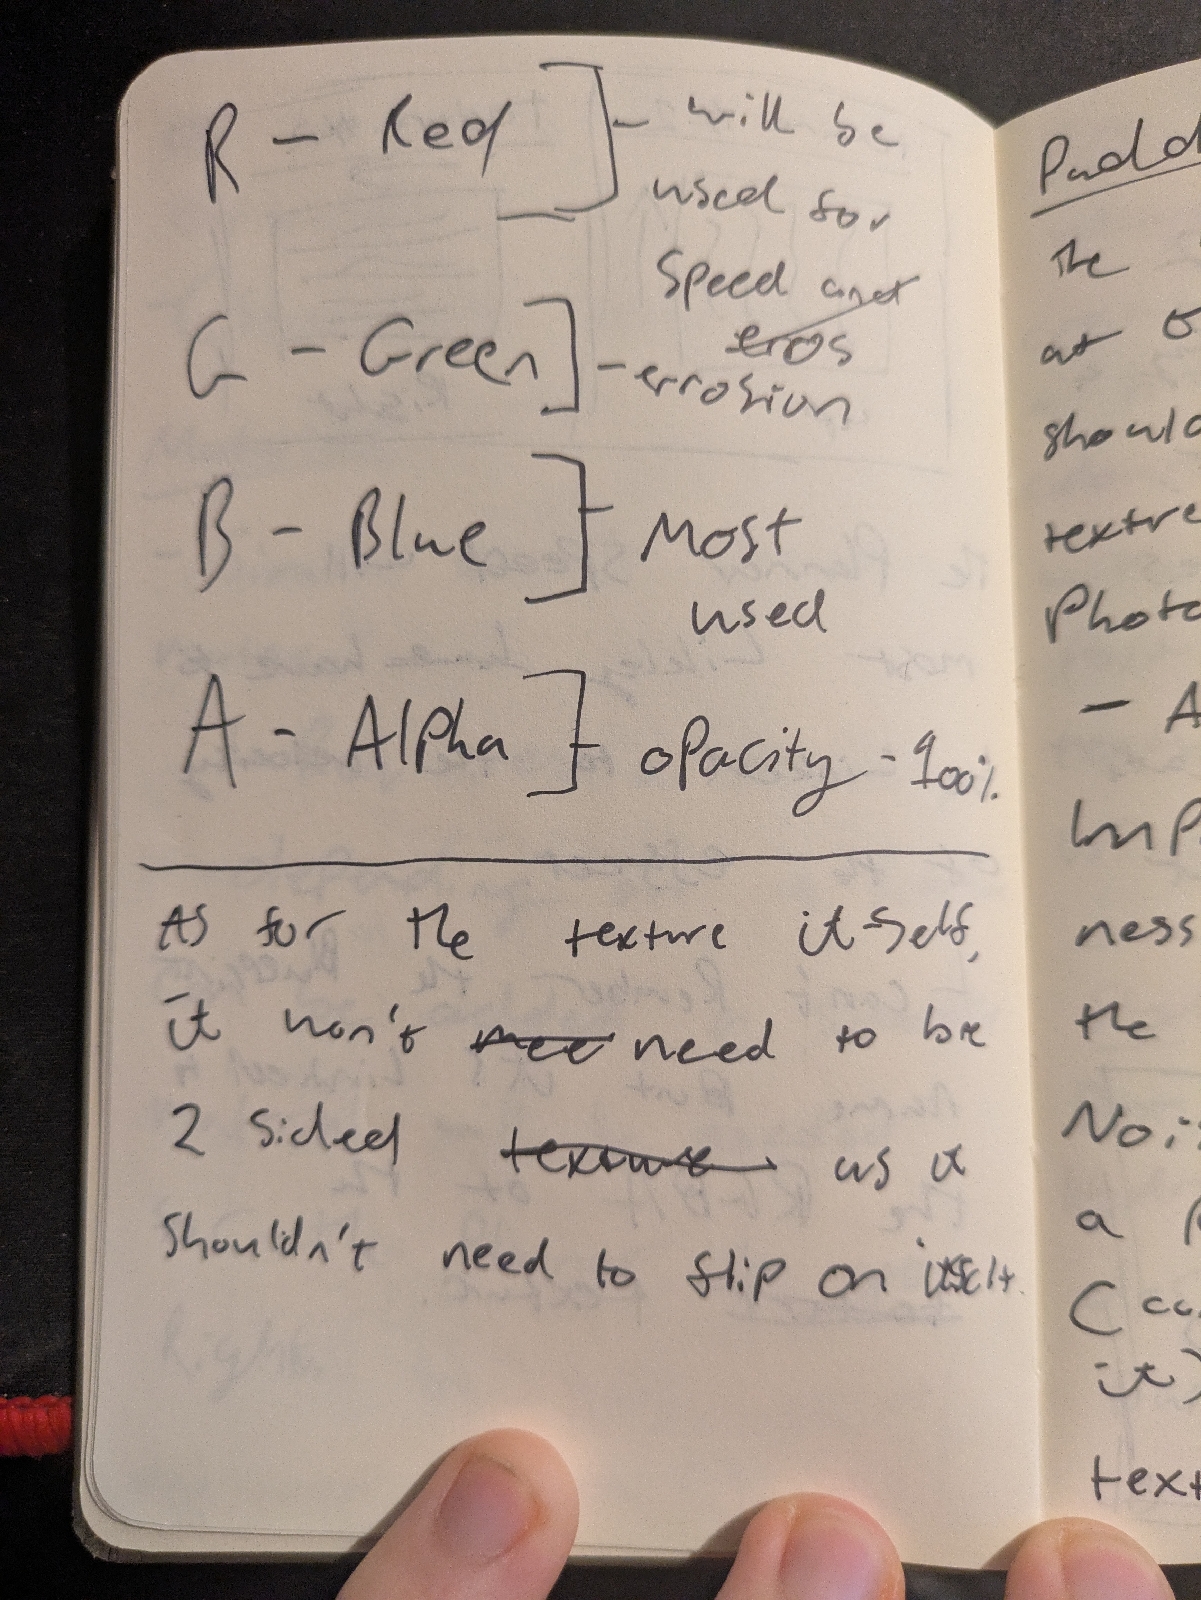 R - Red ] - will be
used for
Speed and
eros
G - Green ] - errosion
B - Blue ] - Most
used
A - Alpha ] - opacity - 100%
As for the texture itself,
it won't nee need to be
2 sided texture as it
shouldn't need to flip on itself.
Padd
the
at
should
textre
Photo
- A
Imp
ness
the
Nois
a
C
it)
text